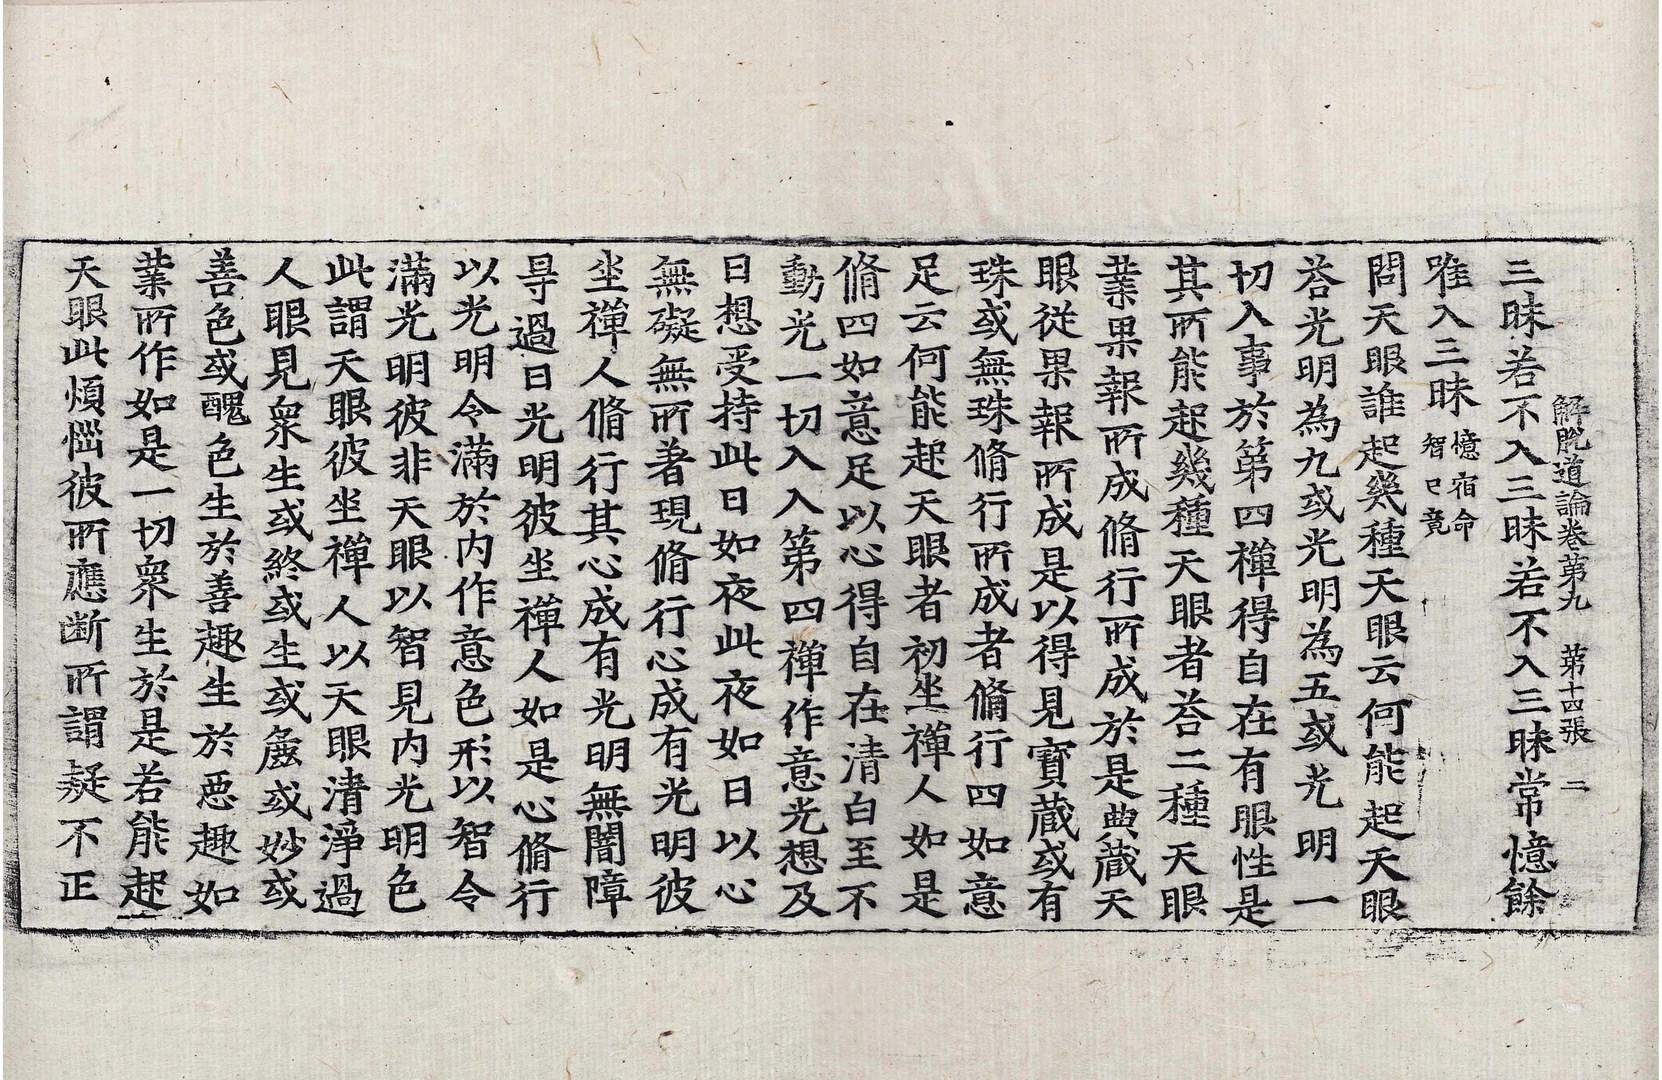 解脫道論卷第九　第十四張　二
三昧若不入三昧若不入三昧常憶餘
唯入三昧憶宿命智已竟
問天眼誰起幾種天眼云何能起天眼
荅光明為九或光明為五或光明一
切入事於第四禪得自在有眼性是
其所能起幾種天眼者荅二種天眼
業果報所成脩行所成於是典藏天
眼從果報所成是以得見寶藏或有
珠或無珠脩行所成者脩行四如意
足云何能起天眼者初坐禪人如是
脩四如意足以心得自在清白至不
動光一切入入第四禪作意光想及
日想受持此日如夜此夜如日以心
無礙無所著現脩行心成有光明彼
坐禪人脩行其心成有光明無闇障
㝵過日光明彼坐禪人如是心脩行
以光明令滿於內作意色形以智令
滿光明彼非天眼以智見內光明色
此謂天眼彼坐禪人以天眼清淨過
人眼見衆生或終或生或麁或妙或
善色或醜色生於善趣生於惡趣如
業所作如是一切衆生於是若能起
天眼此煩惱彼所應断所謂疑不正